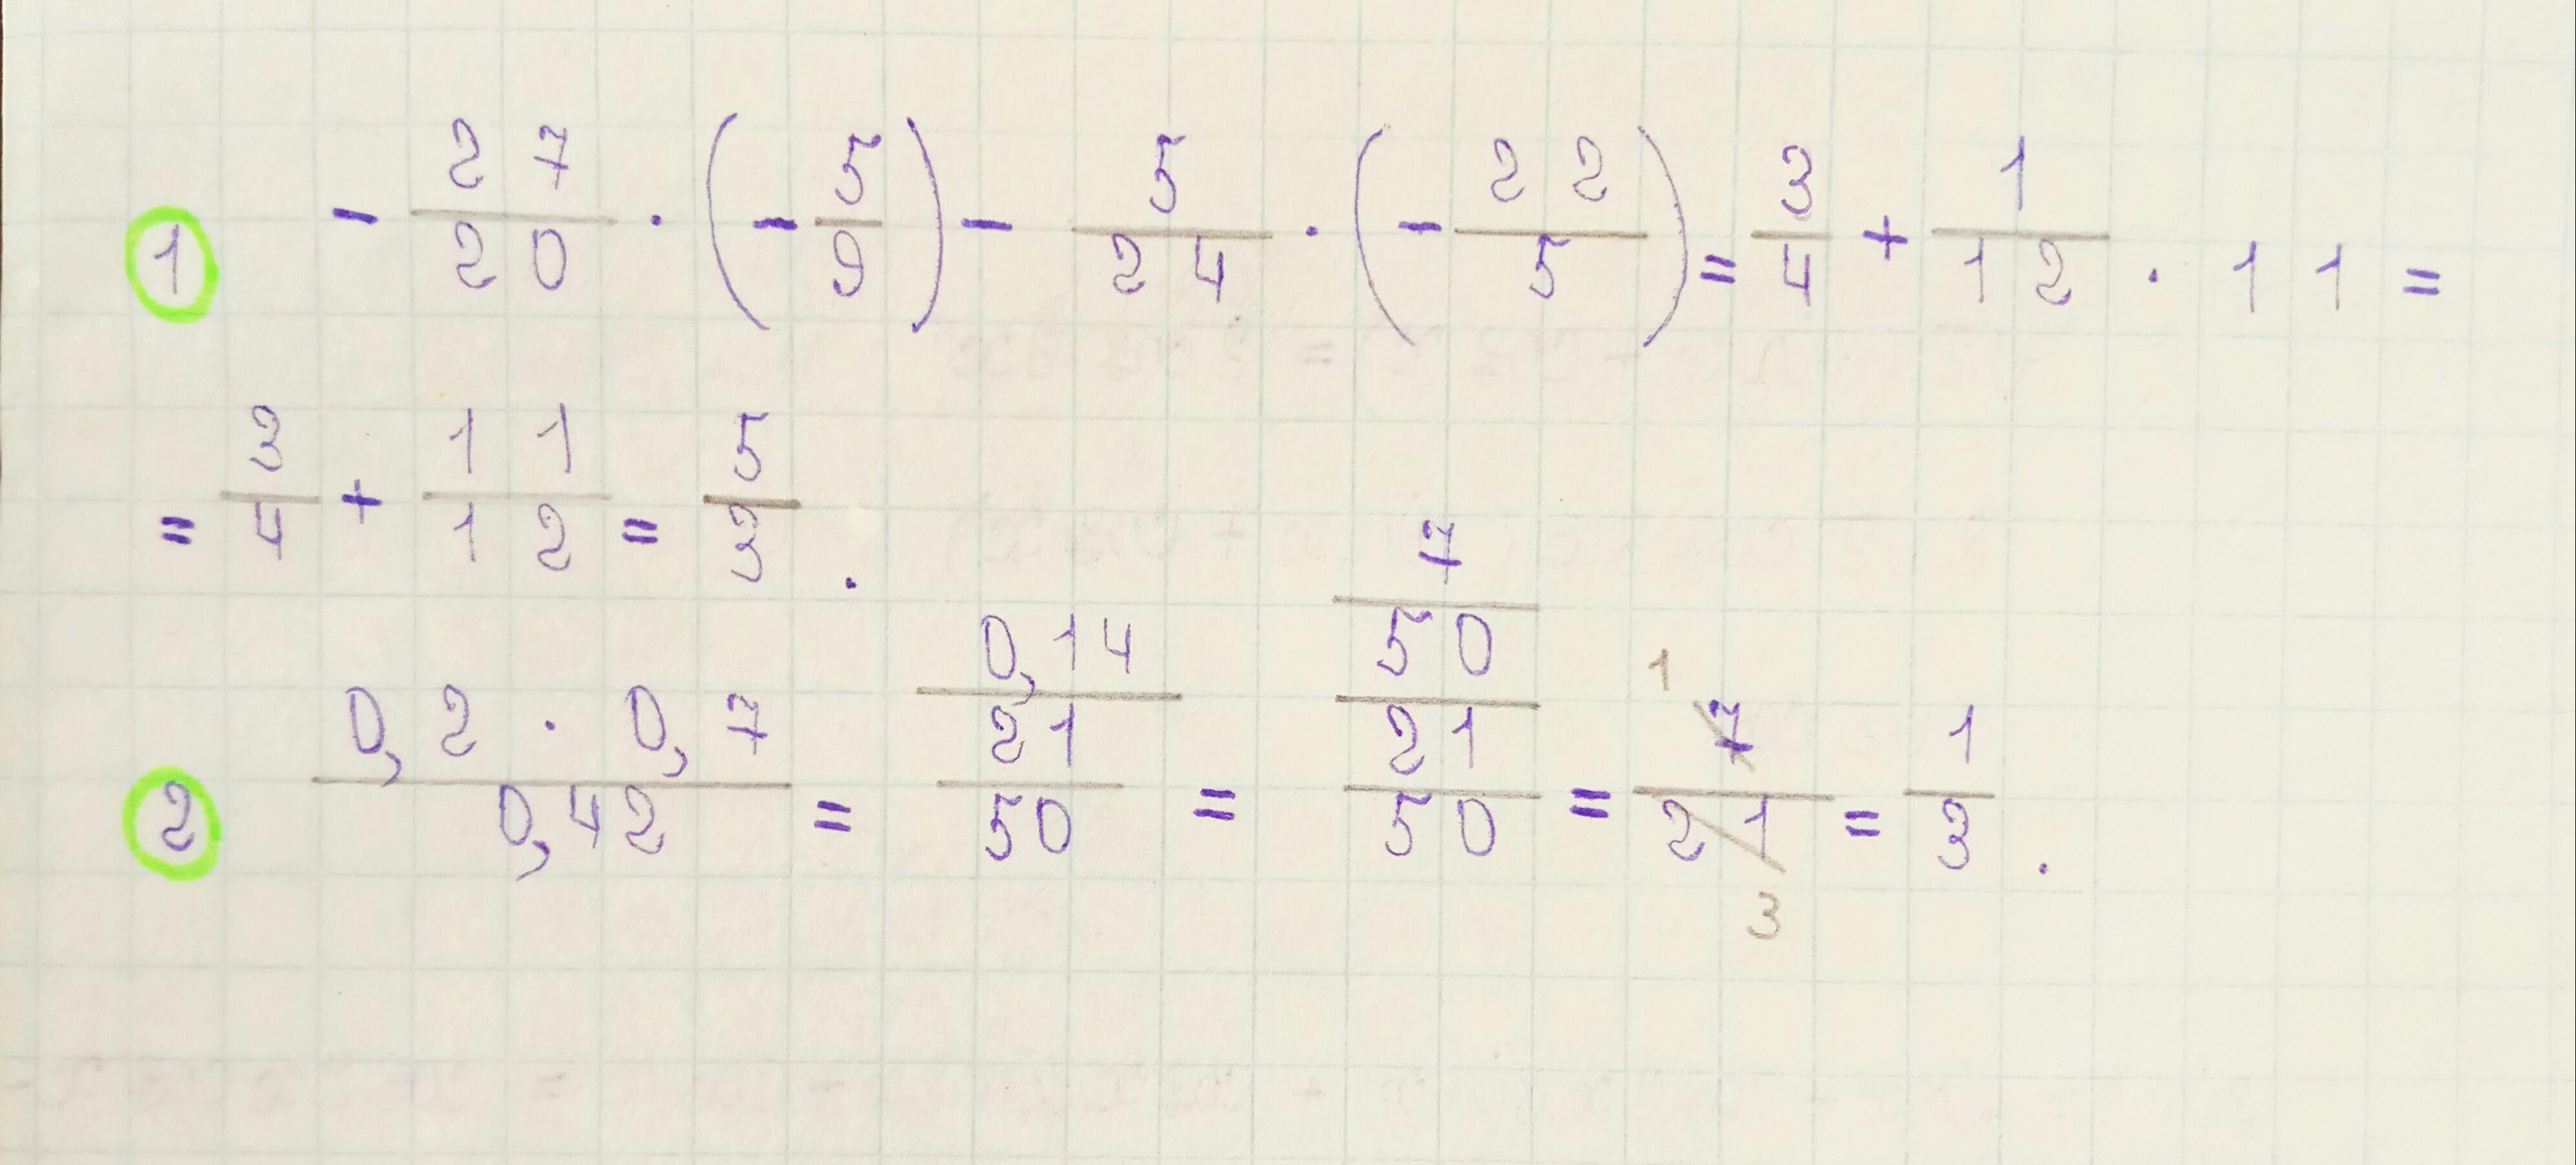 ① - 27/20 · (- 5/9) - 5/24 · (- 22/5) = 3/4 + 1/12 · 11 =
= 3/4 + 11/12 = 5/3 .
② (0,2 · 0,7)/(0,42) = (0,14)/(21/50) = (7/50)/(21/50) = 7/21 = 1/3 .
1
3